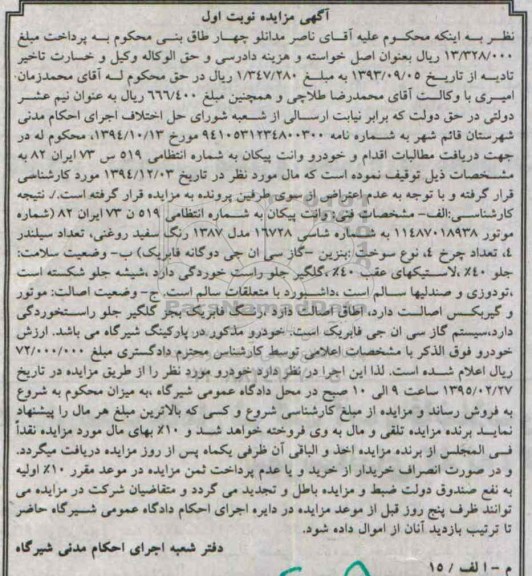 آگهی مزایده نوبت اول
نظر به اینکه محکوم علیه آقای ناصر مدانلو چهار طاق بنی محکوم به پرداخت مبلغ
۱۳/۳۲۸/۰۰۰ ریال بعنوان اصل خواسته و هزینه دادرسی و حق الوکاله وکیل و خسارت تاخیر
تادیه از تاریخ ۱۳۹۳/۰۹/۰۵ به مبلغ ۱/۳۴۷/۲۸۰ ریال در حق محکوم له آقای محمدزمان
امیری با وکالت آقای محمدرضا طلاچی و همچنین مبلغ ۶۶۶/۴۰۰ ریال به عنوان نیم عشر
دولتی در حق دولت که برابر نیابت ارسالی از شعبه شورای حل اختلاف اجرای احکام مدنی
شهرستان قائم شهر به شماره نامه ۹۴۱۰۵۳۱۲۳۴۸۰۰۳۰۰ مورخ ۱۳۹۴/۱۰/۱۳، محکوم له در
جهت دریافت مطالبات اقدام و خودرو وانت پیکان به شماره انتظامی ۵۱۹ س ۷۳ ایران ۸۲ به
مشخصات ذیل توقیف نموده است که مال مورد نظر در تاریخ ۱۳۹۴/۱۲/۰۳ مورد کارشناسی
قرار گرفته و با توجه به عدم اعتراض از سوی طرفین پرونده به مزایده قرار گرفته است./. نتیجه
کارشناسی:الف- مشخصات فنی: وانت پیکان به شماره انتظامی ۵۱۹ ن ۷۳ ایران ۸۲ (شماره
موتور ۱۱۴۸۷۰۱۸۹۳۸ به شماره شاسی ۱۶۷۲۸ مدل ۱۳۸۷ رنگ سفید روغنی، تعداد سیلندر
۴، تعداد چرخ ۴، نوع سوخت :بنزین -گاز سی ان جی دوگانه فابریک) ب- وضعیت سلامت:
جلو ۴۰٪ ،لاستیکهای عقب ۴۰٪ ،گلگیر جلو راست خوردگی دارد ،شیشه جلو شکسته است
،تودوزی و صندلیها سالم است ،داشبورد با متعلقات سالم است. ج- وضعیت اصالت: موتور
و گیربکس اصالت دارد، اطاق اصالت دارد، رنگ فابریک بجز گلگیر جلو راستخوردگی
دارد،سیستم گاز سی ان جی فابریک است. خودرو مذکور در پارکینگ شیرگاه می باشد. ارزش
خودرو فوق الذکر با مشخصات اعلامی توسط کارشناس محترم دادگستری مبلغ ۷۲/۰۰۰/۰۰۰
ریال اعلام شده است. لذا این اجرا در نظر دارد خودرو مورد نظر را از طریق مزایده در تاریخ
۱۳۹۵/۰۲/۲۷ ساعت ۹ الی ۱۰ صبح در محل دادگاه عمومی شیرگاه ،به میزان محکوم به شروع
به فروش رساند و مزایده از مبلغ کارشناسی شروع و کسی که بالاترین مبلغ هر مال را پیشنهاد
نماید برنده مزایده تلقی و مال به وی فروخته خواهد شد و ۱۰٪ بهای مال مورد مزایده نقداً
فی المجلس از برنده مزایده اخذ و الباقی آن ظرفی یکماه پس از روز مزایده دریافت میگردد.
و در صورت انصراف خریدار از خرید و یا عدم پرداخت ثمن مزایده در موعد مقرر ۱۰٪ اولیه
به نفع صندوق دولت ضبط و مزایده باطل و تجدید می گردد و متقاضیان شرکت در مزایده می
توانند ظرف پنج روز قبل از موعد مزایده در دایره اجرای احکام دادگاه عمومی شیرگاه حاضر
تا ترتیب بازدید آنان از اموال داده شود.
دفتر شعبه اجرای احکام مدنی شیرگاه
م - الف / ۱۵